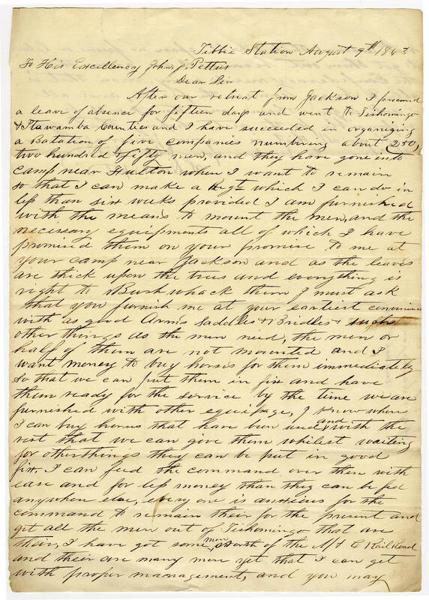 Tibbie Station August 9th 1863
To His Excellency John J. Pettus
Dear Sir
After our retreat from Jackson I procured
a leave of absence for fifteen days and went to Tishomingo
& Itawamba Counties and I have succeeded in organizing
a Batalion of five companies numbering about (250)
two hundred & fifty men, and they have gone into
camp near Fulton when I want to remain
so that I can make a Regt which I can do in
less than six weeks provided I am furnished
with the means to mount the men, and the
necessary equipments all of which I have
promised them on your promise to me at
your camp near Jackson and as the leaves
are thick upon the trees and everything is
right to Bushwhack them I must ask
that you furnish me at your earliest convenience
with as good Arms Saddles & Bridles & such
other things as the men need, the men or
half of them are not mounted and I
want money to buy horses for them immediately
so that we can put them in fix and have
them ready for the service by the time we are
furnished with other equipage, I know where
I can buy horses that have been used and with the
rest that we can give them whilst waiting
for other things they can be put in good
fix. I can feed the command over there with
ease and for less money than they can be fed
anywhere else, every one is anxious for the
command to remain their for the present and
get all the men out of Tishomingo that are
there, I have got some men North of the M & C Rail Road
and their are many more yet that I can get
with proper management, and you may